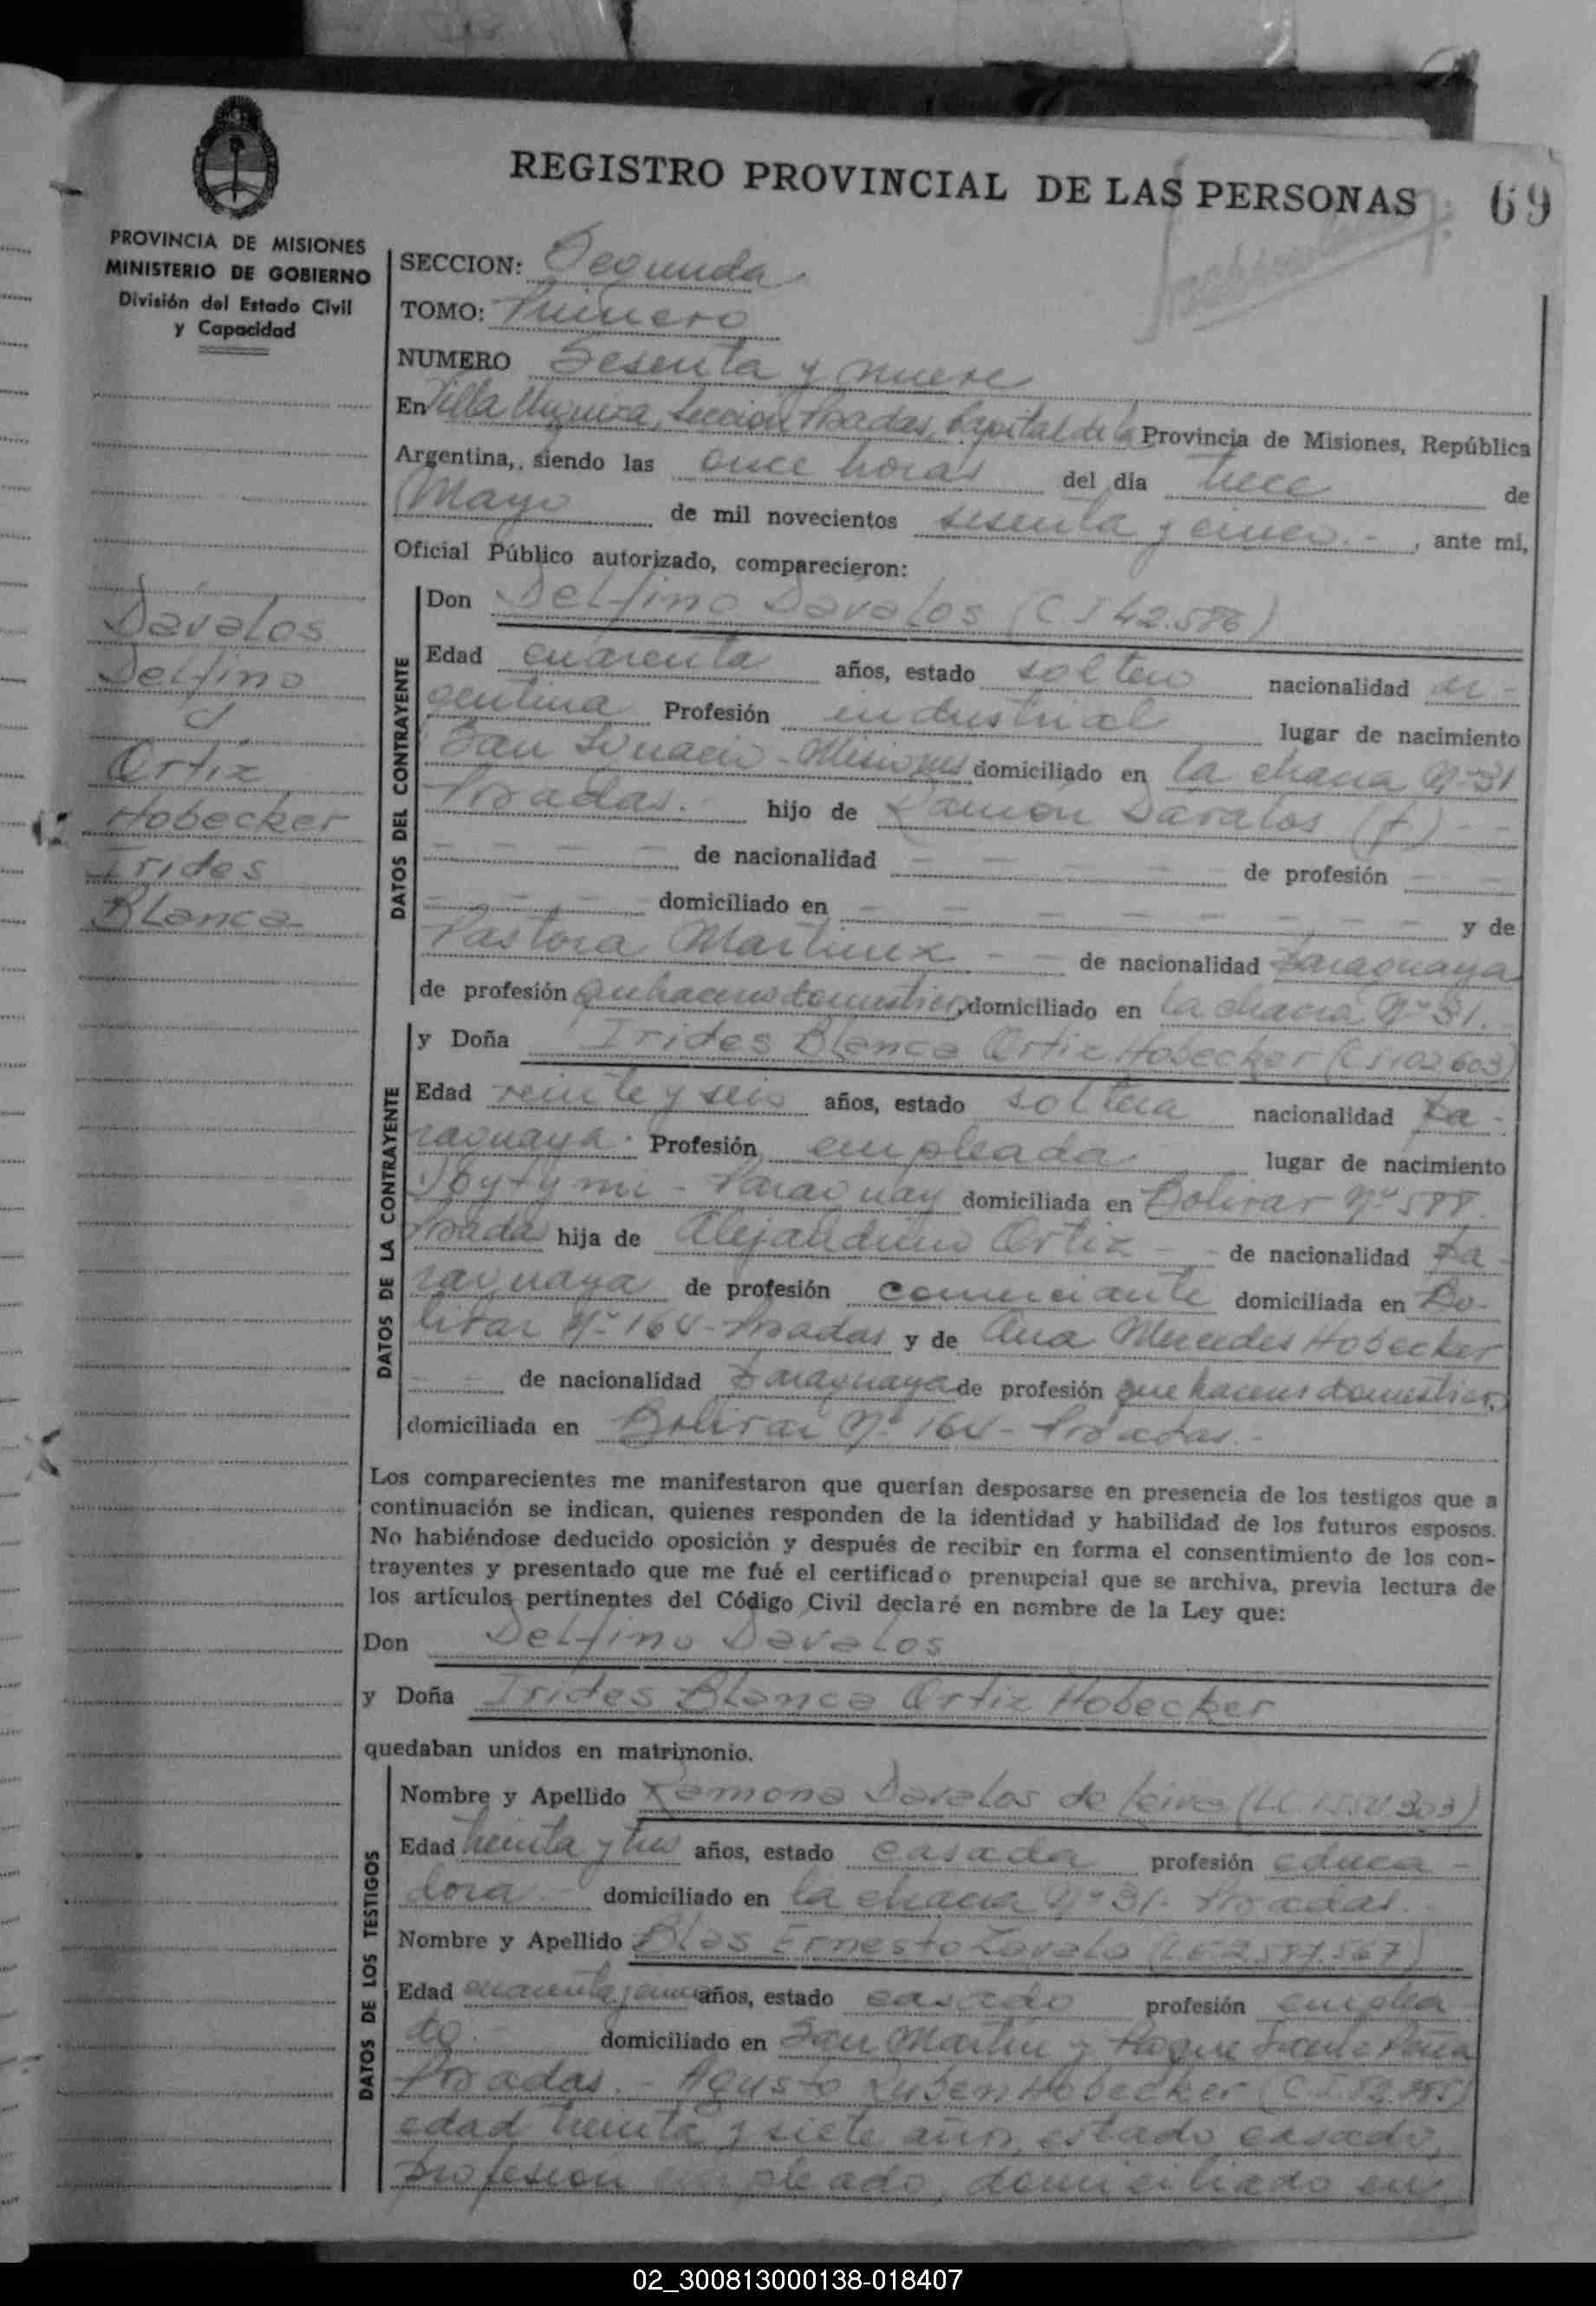 REGISTRO PROVINCIAL DE LAS PERSONAS 69
PROVINCIA DE MISIONES
MINISTERIO DE GOBIERNO
División del Estado Civil
y Capacidad
SECCION: Segunda
TOMO: Primero
NUMERO Sesenta y nueve
En Villa Urquiza, Seccion Posadas, Capital de la Provincia de Misiones, República
Argentina,, siendo las once horas del día trece de
Mayo de mil novecientos sesenta y cinco.- , ante mi,
Oficial Público autorizado, comparecieron:
Davalos
Delfino
c/
Ortiz
Hobecker
Irides
Blanca
DATOS DEL CONTRAYENTE
Don Delfino Davalos (C I 42.586)
Edad cuarenta años, estado soltero nacionalidad ar-
gentina Profesión industrial lugar de nacimiento
San Ignacio - Misiones domiciliado en la chacra Nº 31
Posadas.- hijo de Ramón Davalos (f) - -
- - - - de nacionalidad - - - - de profesión - -
- - - domiciliado en - - - - - - - y de
Pastora Martinez - - de nacionalidad paraguaya
de profesión quehaceres domesticos, domiciliado en la chacra Nº 31.-
DATOS DE LA CONTRAYENTE
y Doña Irides Blanca Ortiz Hobecker (C I 102.603)
Edad veinte y seis años, estado soltera nacionalidad pa-
raguaya. Profesión empleada lugar de nacimiento
Ybytymi - Paraguay domiciliada en Bolivar Nº 588.
Posadas hija de Alejandrino Ortiz - - de nacionalidad pa-
raguaya de profesión comerciante domiciliada en Bo-
livar Nº 164 - Posadas y de Ana Mercedes Hobecker
- - de nacionalidad paraguaya de profesión que haceres domesticos,
domiciliada en Bolivar Nº 164 - Posadas.-
Los comparecientes me manifestaron que querían desposarse en presencia de los testigos que a
continuación se indican, quienes responden de la identidad y habilidad de los futuros esposos.
No habiéndose deducido oposición y después de recibir en forma el consentimiento de los con-
trayentes y presentado que me fué el certificado prenupcial que se archiva, previa lectura de
los artículos pertinentes del Código Civil declaré en nombre de la Ley que:
Don Delfino Davalos
y Doña Irides Blanca Ortiz Hobecker
quedaban unidos en matrimonio.
DATOS DE LOS TESTIGOS
Nombre y Apellido Ramona Davalos de Leiva
Edad treinta y tres años, estado casada profesión educa-
dora domiciliado en la chacra Nº 31- Posadas.-
Nombre y Apellido Blas Ernesto Zavala (LE 2.587.567)
Edad cuarenta y cinco años, estado casado profesión emplea-
do.- domiciliado en San Martin y Roque Saenz Peña
Posadas.- Agusto Ruben Hobecker
edad treinta y siete años, estado casado,
profesion empleado, domiciliado en
02_300813000138-018407